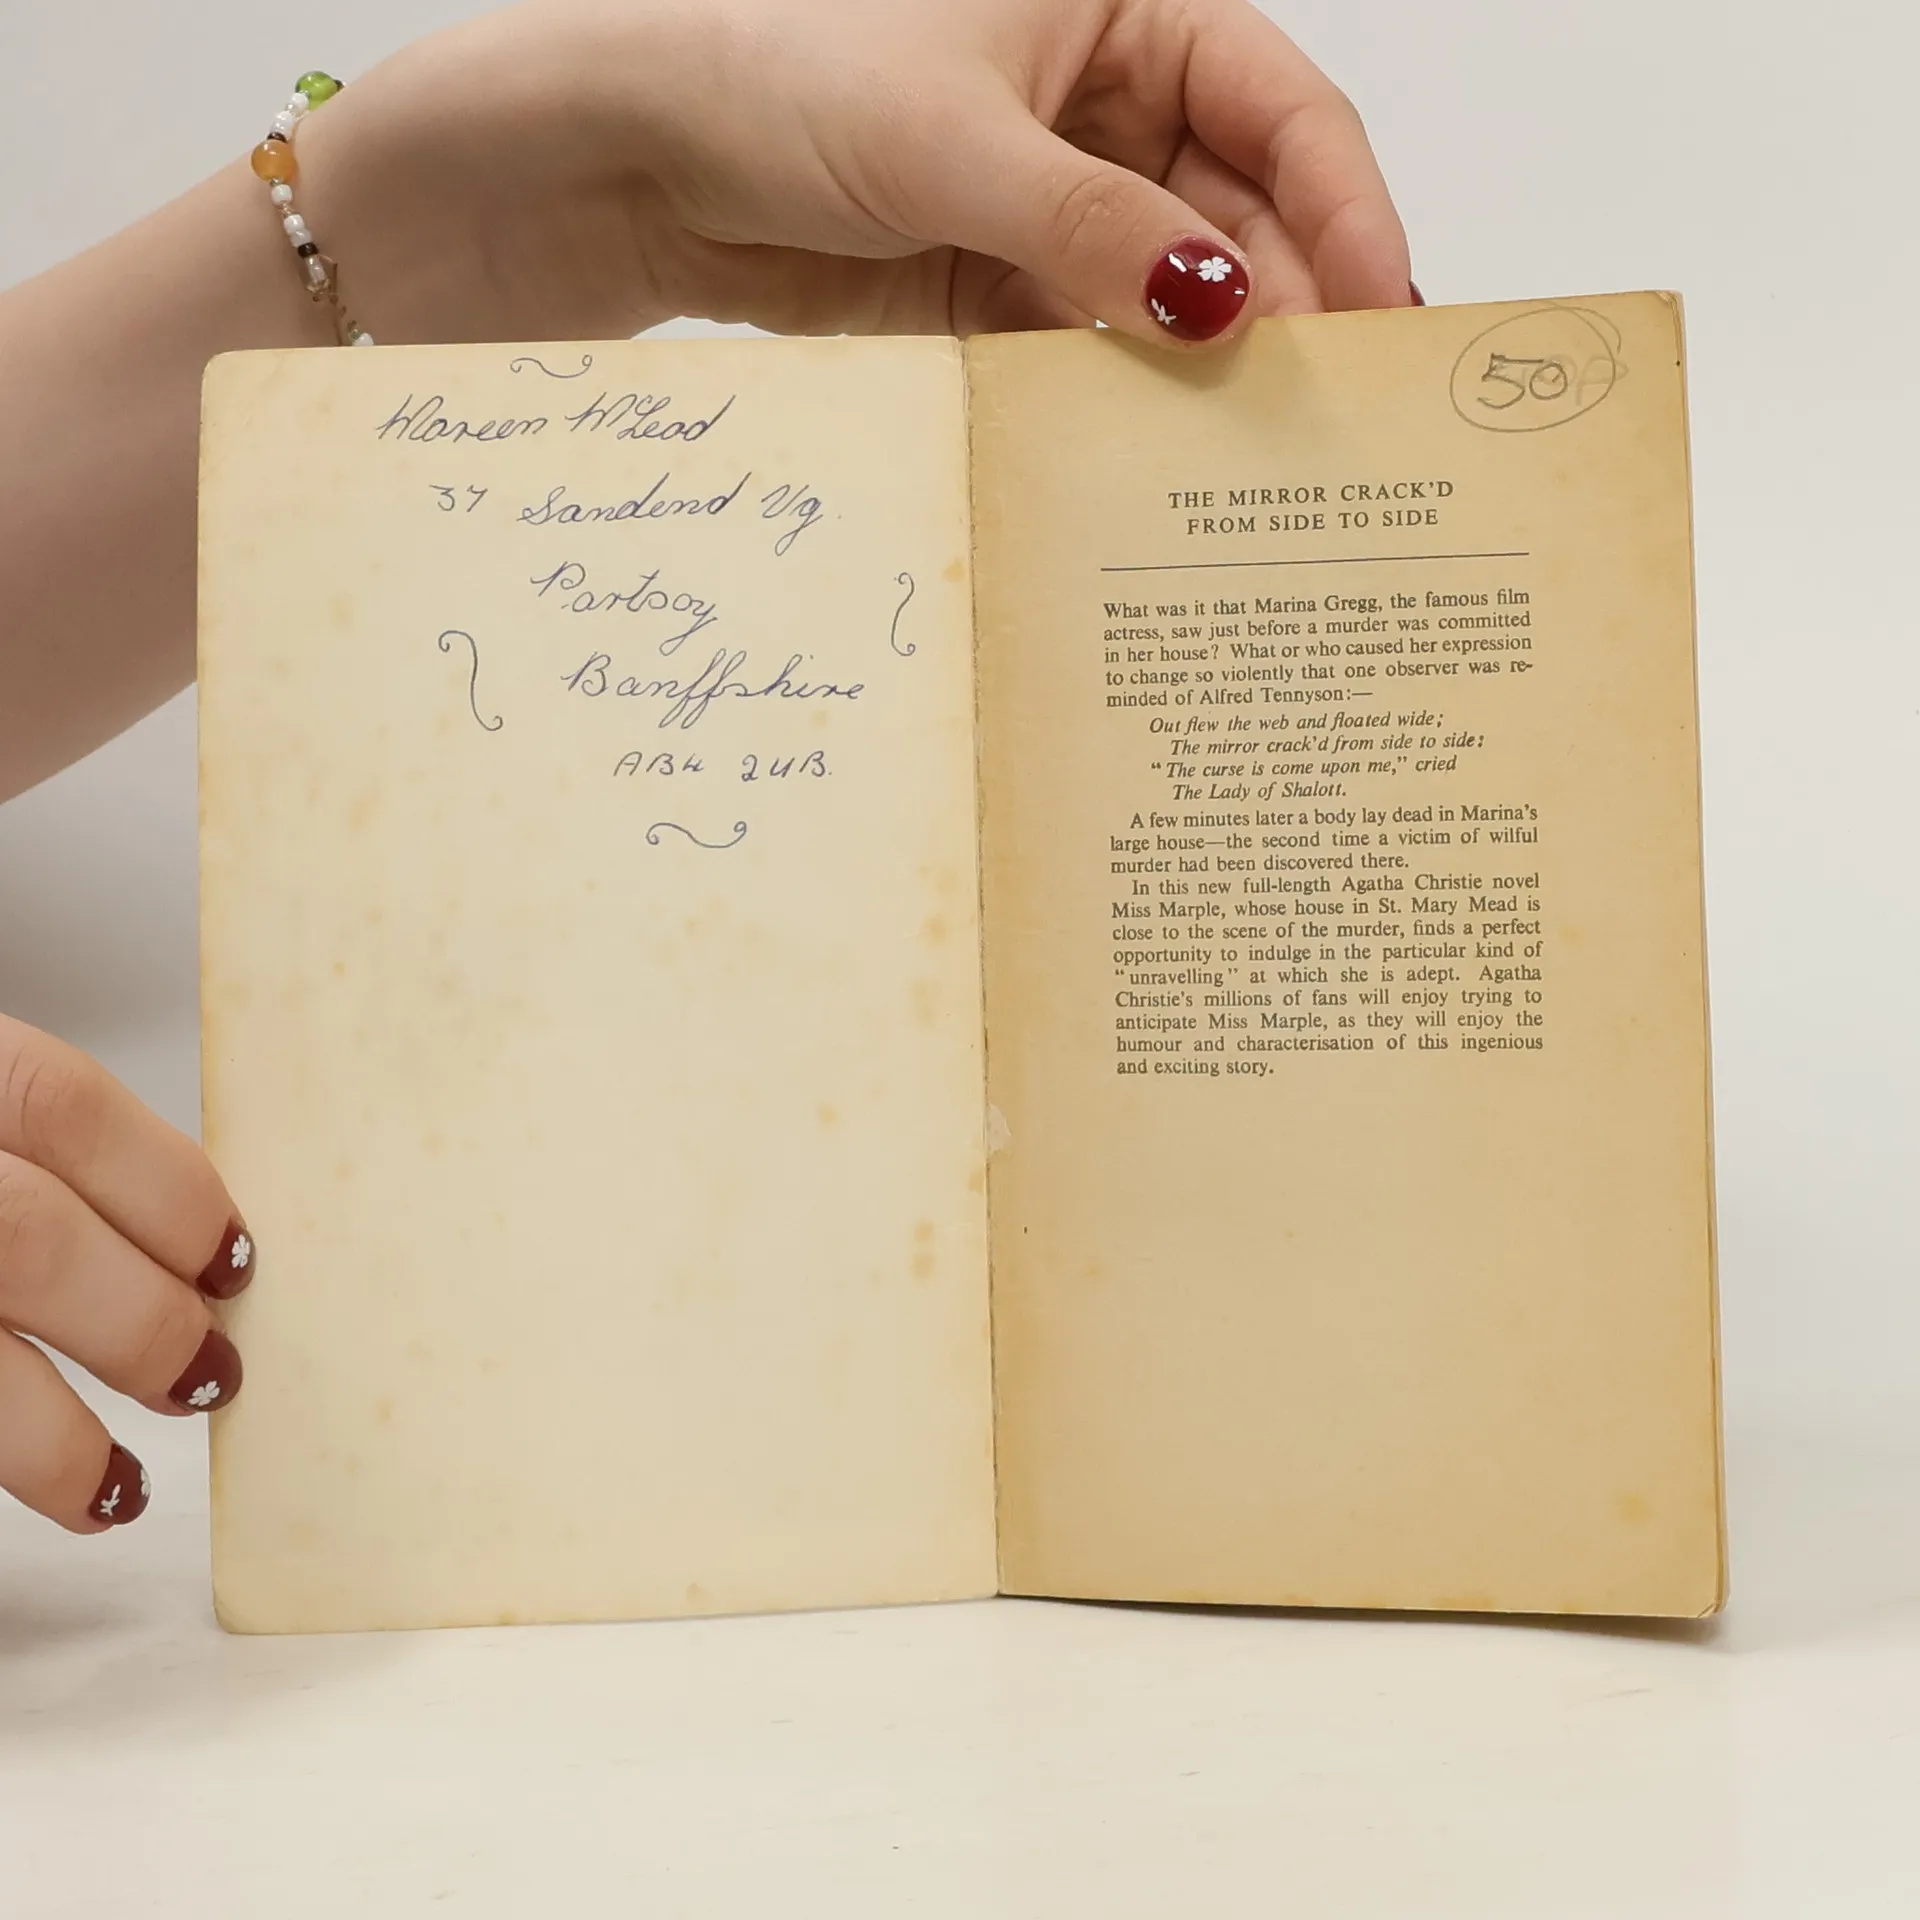 Moreen McLeod
37 Sandend Vg.
Portsoy
Banffshire
AB4 2UB.
50
THE MIRROR CRACK'D
FROM SIDE TO SIDE
What was it that Marina Gregg, the famous film
actress, saw just before a murder was committed
in her house? What or who caused her expression
to change so violently that one observer was re-
minded of Alfred Tennyson:—
Out flew the web and floated wide;
The mirror crack'd from side to side:
“The curse is come upon me,” cried
The Lady of Shalott.
A few minutes later a body lay dead in Marina's
large house—the second time a victim of wilful
murder had been discovered there.
In this new full-length Agatha Christie novel
Miss Marple, whose house in St. Mary Mead is
close to the scene of the murder, finds a perfect
opportunity to indulge in the particular kind of
“unravelling” at which she is adept. Agatha
Christie's millions of fans will enjoy trying to
anticipate Miss Marple, as they will enjoy the
humour and characterisation of this ingenious
and exciting story.